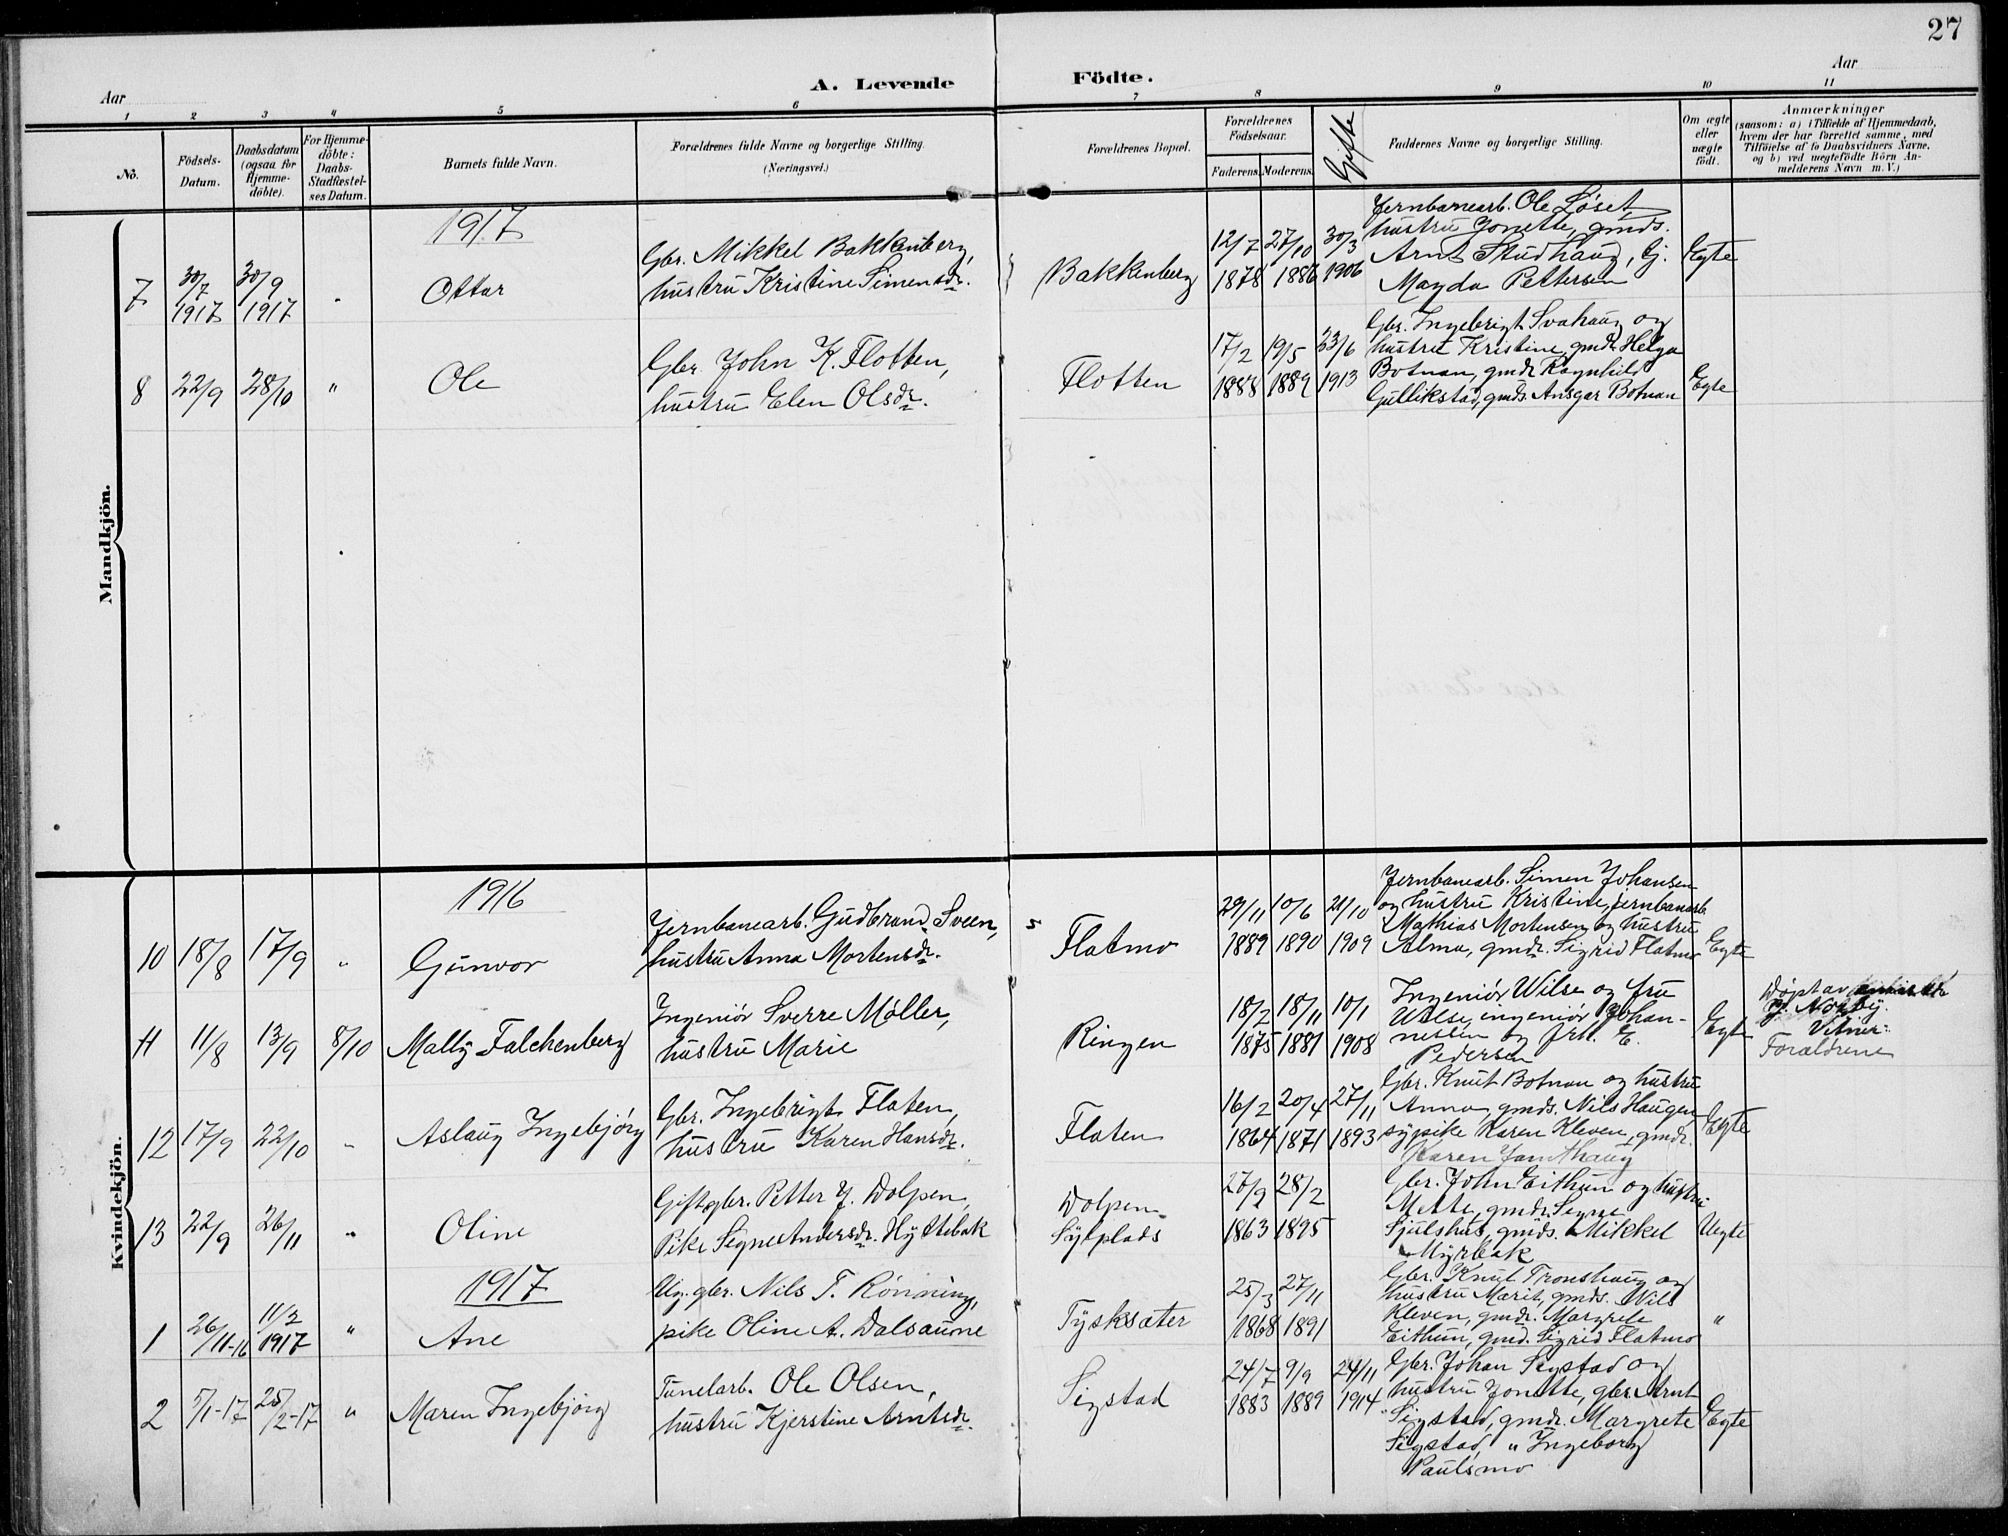 27
A. Levende Födte.
Aar
Aar
1 2 3 4 5 6 7 8 9 10 11
No.
Födsels-Datum.
Daabsdatum (ogsaa for Hjemme-döbte).
For Hjemme-döbte: Daabs-Stadfæstel-ses Datum.
Barnets fulde Navn.
Forældrenes fulde Navne og borgerlige Stilling.
(Næringsvei.)
Forældrenes Bopæl.
Forældrenes Födselsaar.
Faderens. Moderens.
Gifte
Faddernes Navne og borgerlige Stilling.
Om ægte eller uægte födt.
Anmærkninger
(saasom: a) i Tilfælde af Hjemmedaab,
hvem der har forrettet samme, med
Tilföielse af to Daabsvidners Navne,
og b) ved uægtefödte Börn An-
melderens Navn m. V.)
Mandkjön.
1917
7 30/7 1917 30/9 1917 Ottar
Gbr. Mikkel Bakkenberg,
hustru Kristine Simensdr.
Bakkenberg
12/7 1878 27/10 1886 30/3 1906
Jernbanearb. Ole Löset,
hustru Jonette, gmds.
Arnt Studhaug, Gj.
Magda Pettersen
Egte
8 22/9 28/10 " Ole
Gbr. John K. Flotten,
hustru Elen Olsdr.
Flotten
17/2 1888 19/5 1889 23/6 1913
Gbr. Ingebrigt Svahaug og
hustru Kristine, gmdr. Helga
Botnan, gmdr. Ragnhild
Gullikstad, gmds. Ansgar Botnan
Egte
Kvindekjön.
1916
10 18/8 17/9 " Gunvor
Jernbanearb. Gudbrand Sveen,
hustru Anna Mortensdr.
Flatmo
29/11 1889 10/6 1890 21/10 1909
Jernbanearb. Simen Johansen
og hustru Kristine, jernbanearb.
Mathias Mortensen og hustru
Alma, gmdr. Sigrid Flatmo
Egte
11 11/8 13/9 8/10 Mally Falchenberg
Ingeniör Sverre Möller,
hustru Marie
Ringen
18/2 1875 18/11 1881 10/1 1908
Ingeniör Wilse og fru
Wilse, ingeniör Johan-
nessen og frk. E.
Pedersen
Egte
Döpt av
J. Norby.
Vitner:
Forældrene
12 17/9 22/10 " Aslaug Ingebjörg
Gbr. Ingebrigt Flaten,
hustru Karen Hansdr.
Flaten
16/2 1864 20/4 1871 27/11 1893
Gbr. Knut Botnan og hustru
Anna, gmds. Nils Haugen,
sypike Karen Kleven, gmdr.
Karen Jamthaug
Egte
13 22/9 26/11 " Oline
Gift gbr. Petter J. Dolpen,
Pike Signe Andersdr. Hyttebak
Dolpen
Sylplads
27/9 1863 28/2 1895
Gbr. John Eithun og hustru
Mette, gmdr. Signe
Sjulshus, gmds. Mikkel
Myrbak
Uegte
1917
1 26/11-16 11/2 1917 " Ane
Ug. gbr. Nils T. Rönning,
pike Oline A. Dalsaune
Tysksæter
25/3 1868 27/11 1891
Gbr. Knut Tronshaug og
hustru Marit, gmds. Nils
Kleven, gmdr. Margrete
Eithun, gmd. Sigrid Flatmo
"
2 5/1-17 25/2-17 " Maren Ingebjörg
Tunelarb. Ole Olsen,
hustru Kjerstine Arntsdr.
Sigstad
24/7 1883 9/9 1889 24/11 1914
Gbr. Johan Sigstad og
hustru Jonette, gbr. Arnt
Sigstad, gmdr. Margrete
Sigstad, " Ingeborg
Paulsmo
Egte